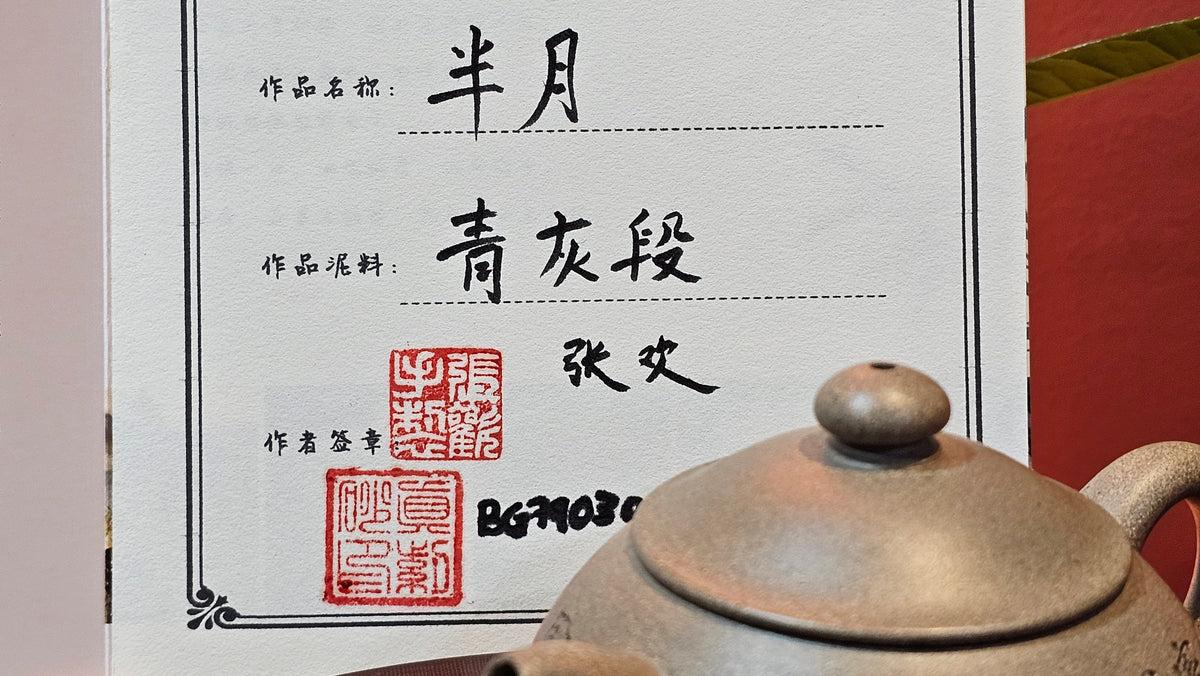 作品名称：半月
作品泥料：青灰段
张欢
張歡手製
作者签章
BG79030